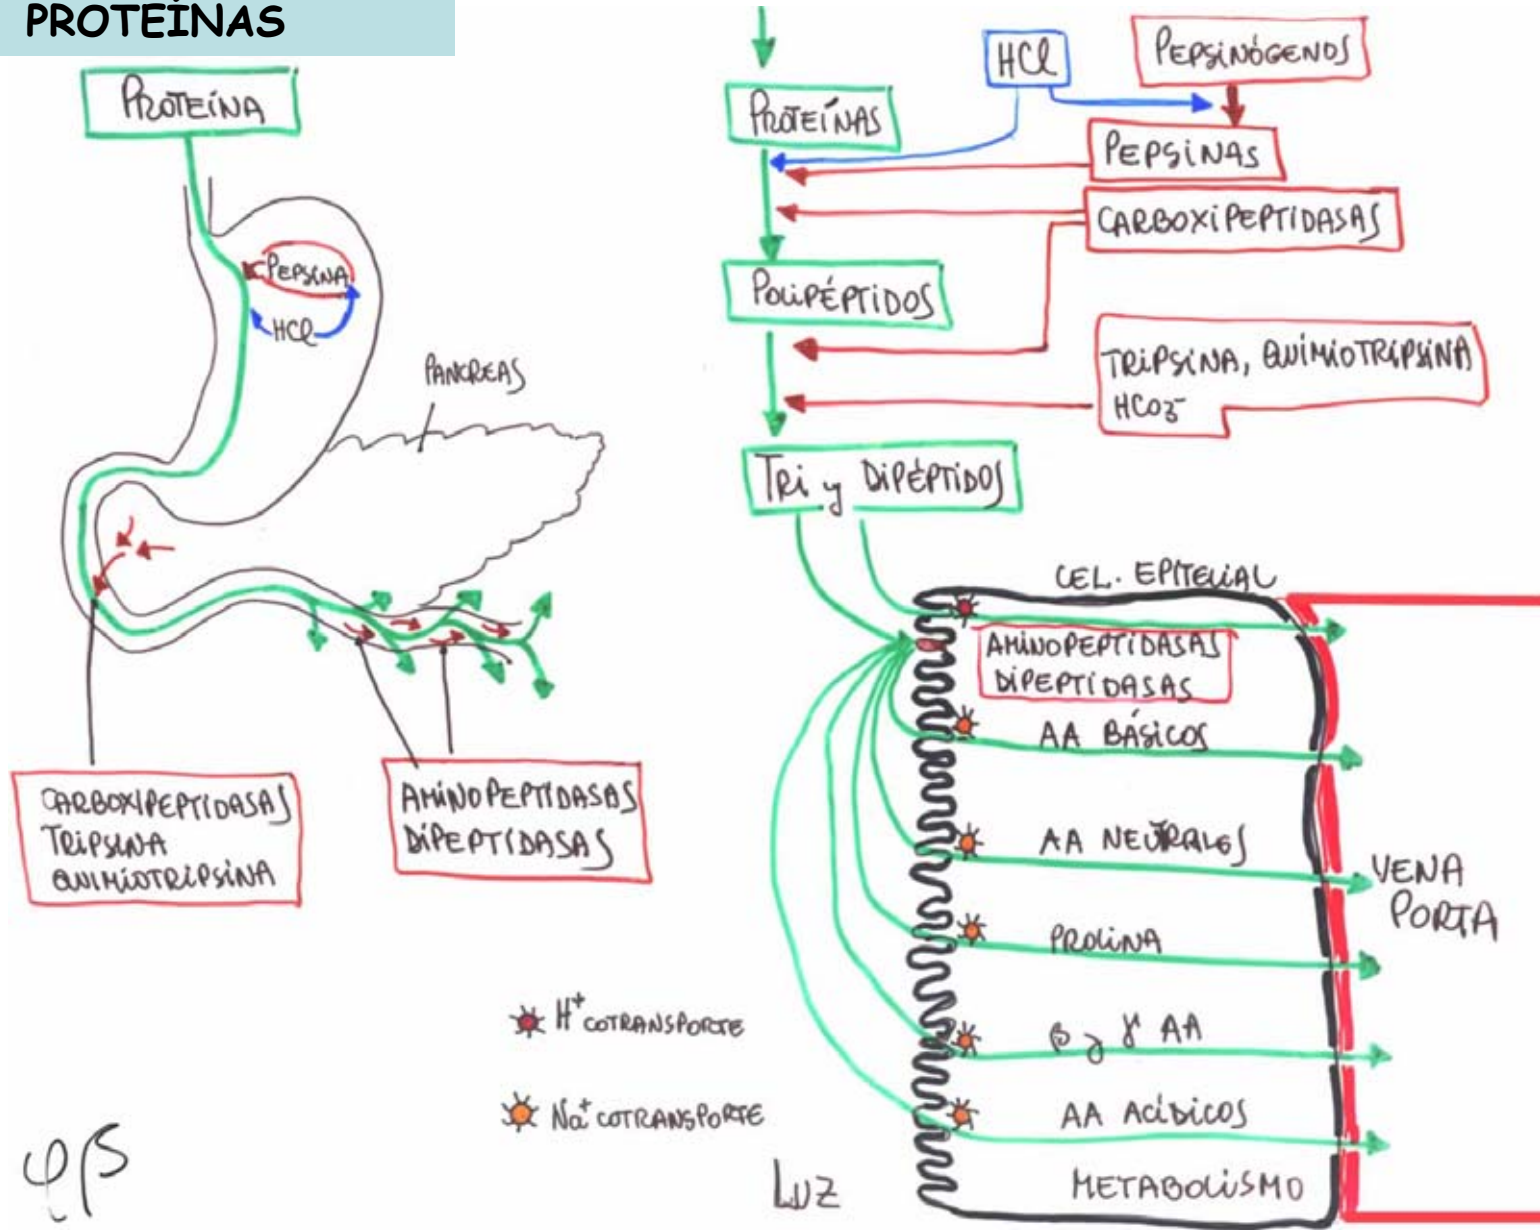 PROTEÍNAS
PROTEÍNA
PEPSINA
HCl
PANCREAS
CARBOXIPEPTIDASAS
TRIPSINA
QUIMIOTRIPSINA
AMINOPEPTIDASAS
DIPEPTIDASAS
HCl
PEPSINÓGENOS
PROTEÍNAS
PEPSINAS
CARBOXIPEPTIDASAS
POLIPÉPTIDOS
TRIPSINA, QUIMIOTRIPSINA
HCO3-
TRI y DIPÉPTIDOS
CEL. EPITELIAL
AMINOPEPTIDASAS
DIPEPTIDASAS
AA BÁSICOS
AA NEUTRALES
VENA
PORTA
PROLINA
β y γ AA
AA ACÍDICOS
METABOLISMO
H+ COTRANSPORTE
Na+ COTRANSPORTE
LUZ